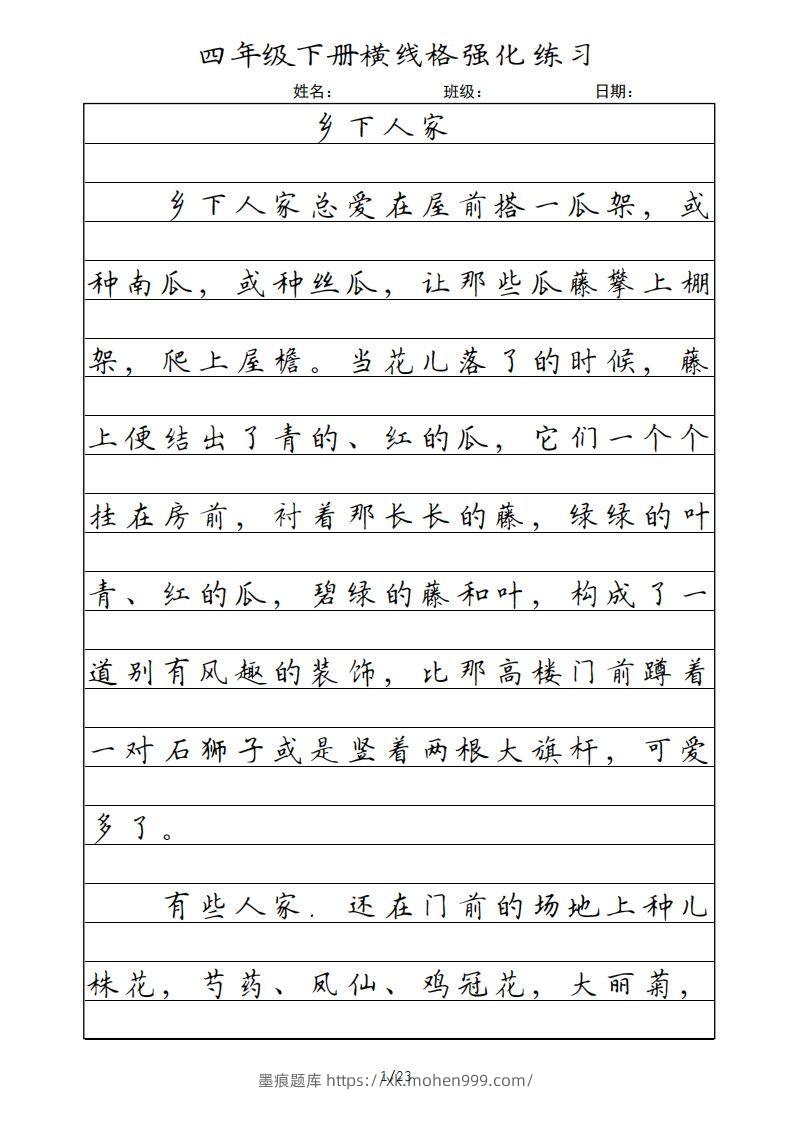 四年级下册横线格强化练习
姓名： 班级： 日期：
乡下人家
乡下人家总爱在屋前搭一瓜架，或
种南瓜，或种丝瓜，让那些瓜藤攀上棚
架，爬上屋檐。当花儿落了的时候，藤
上便结出了青的、红的瓜，它们一个个
挂在房前，衬着那长长的藤，绿绿的叶
青、红的瓜，碧绿的藤和叶，构成了一
道别有风趣的装饰，比那高楼门前蹲着
一对石狮子或是竖着两根大旗杆，可爱
多了。
有些人家．还在门前的场地上种儿
株花，芍药、凤仙、鸡冠花，大丽菊，
1/23
墨痕题库 https://xk.mohen999.com/